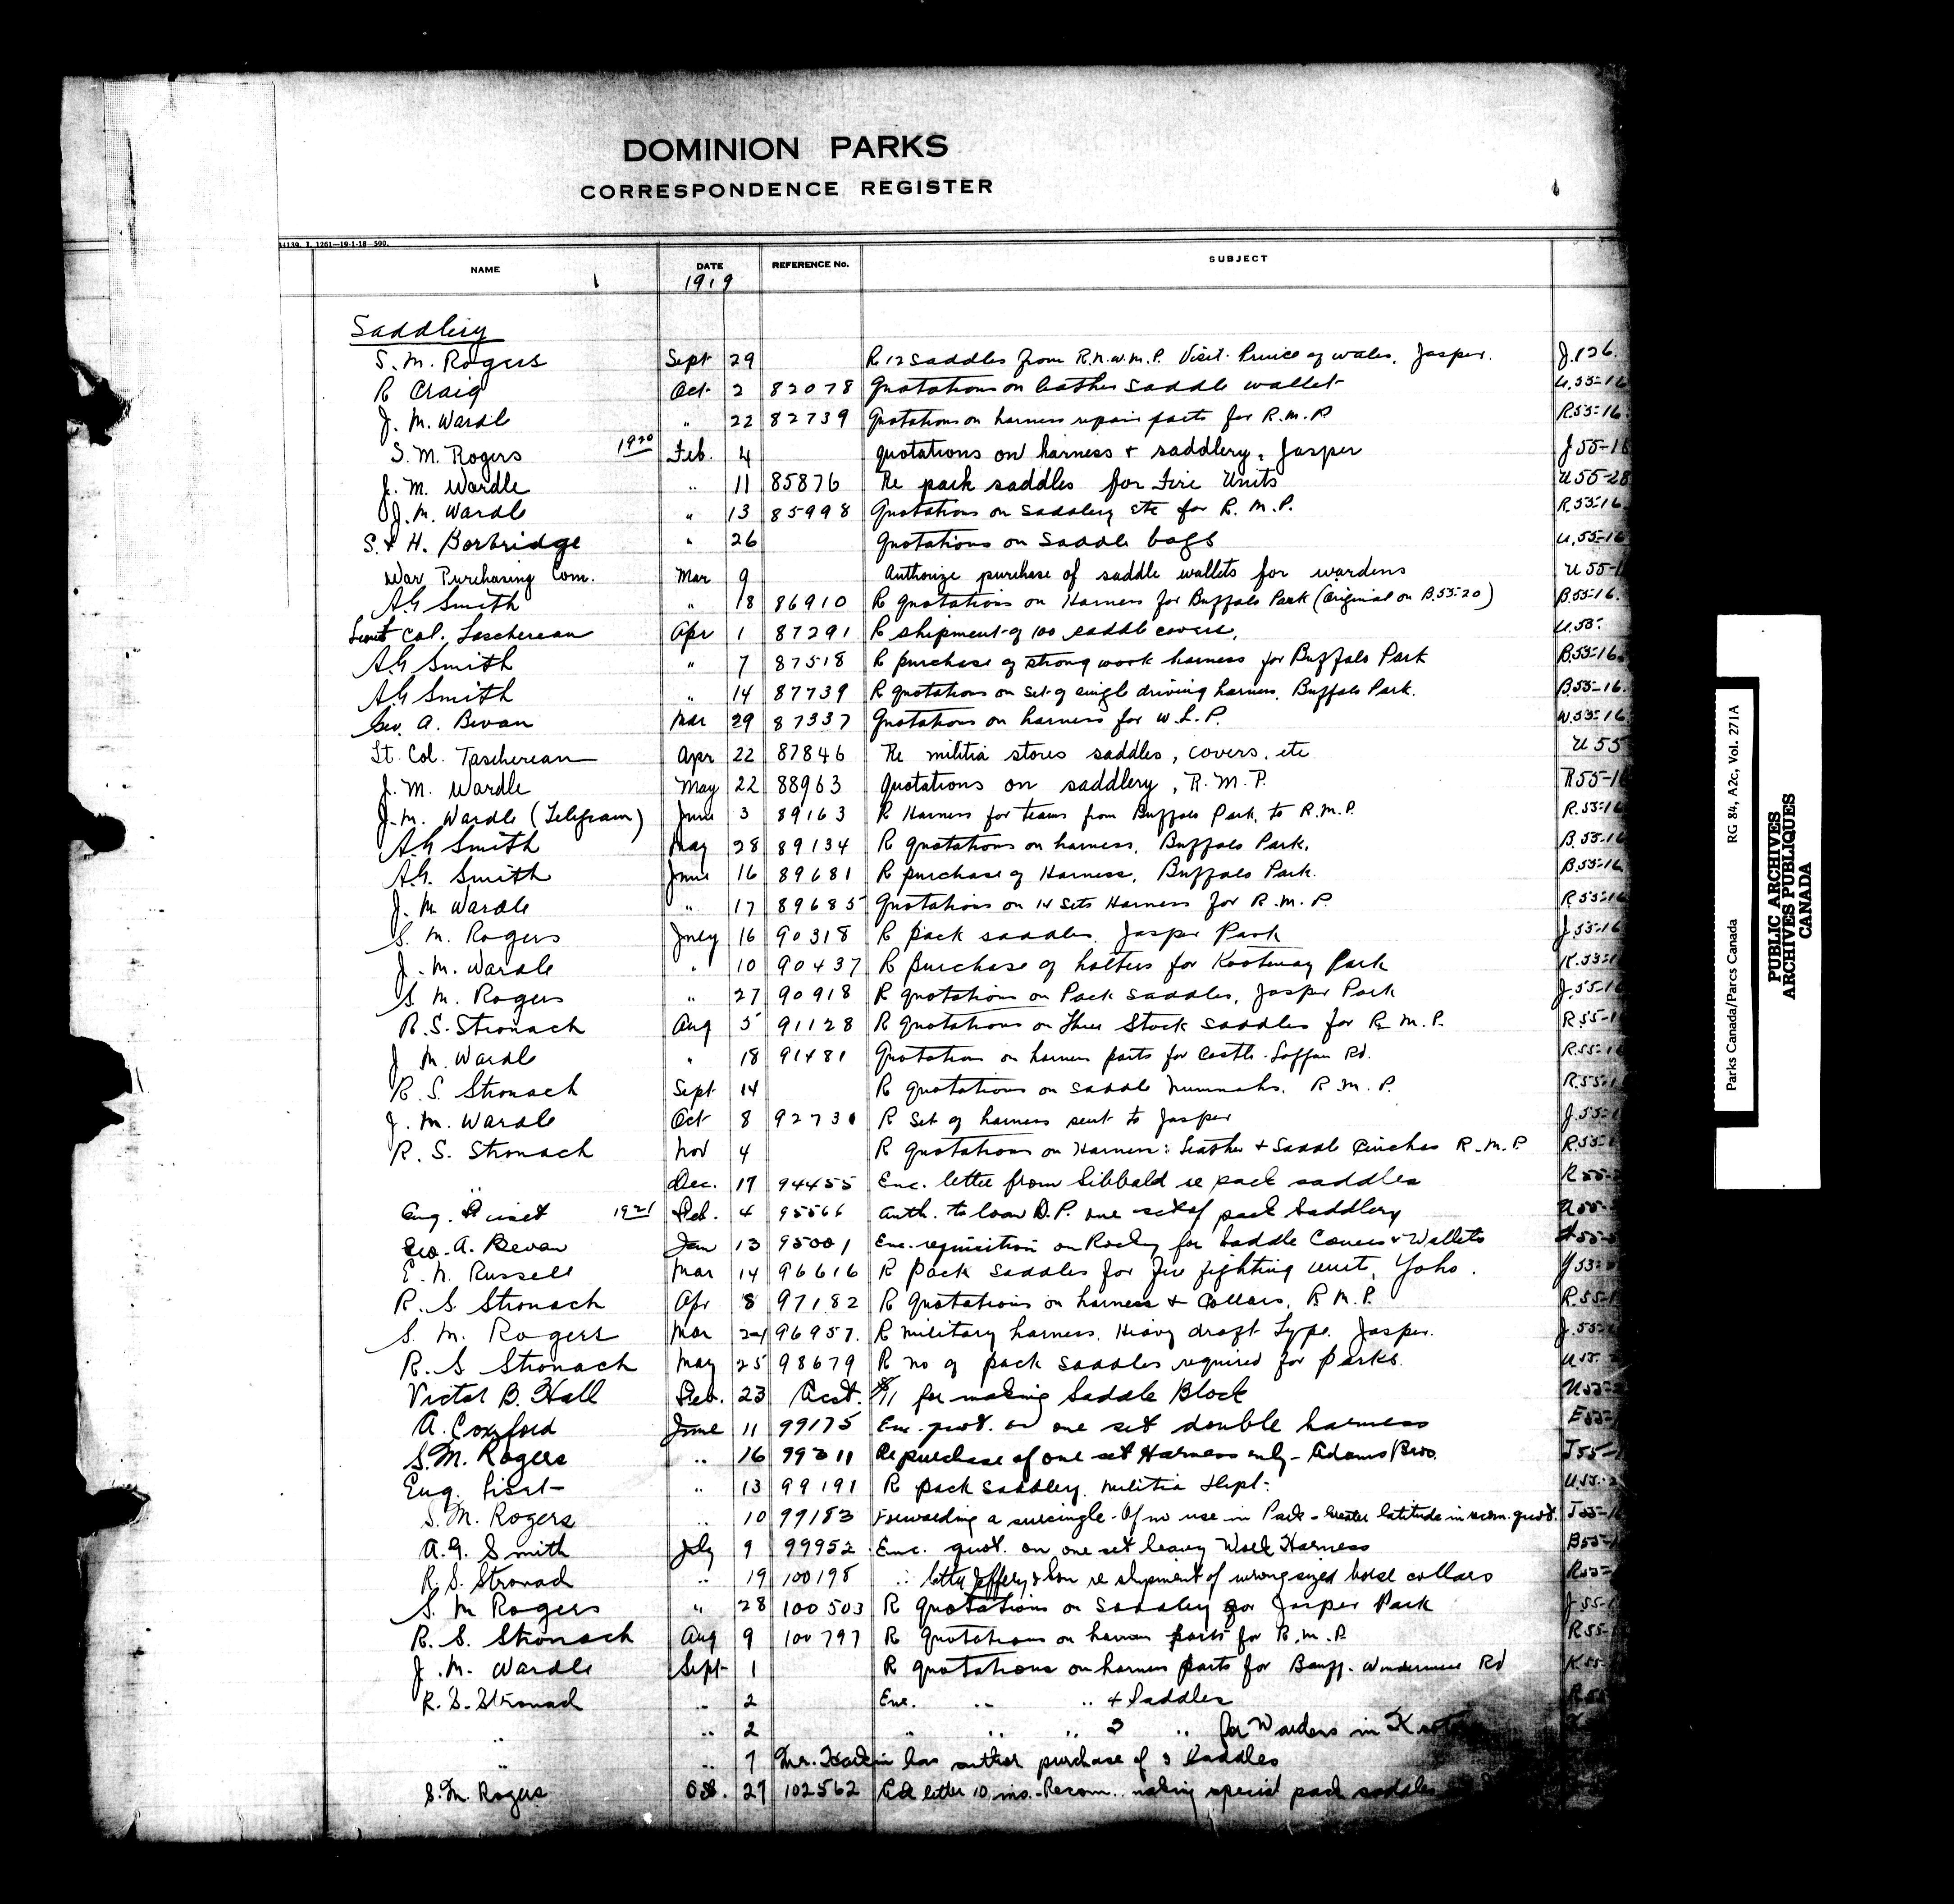 DOMINION PARKS
CORRESPONDENCE REGISTER
14139. I. 1261—19-1-18 500.
NAME DATE REFERENCE No. SUBJECT
1919
Saddlery
S. M. Rogers Sept 29 R 12 Saddles from R.N.W.M.P. Visit Prince of Wales, Jasper. J.126.
R Craig Oct 2 82078 Quotations on leather saddle wallet U.55-16
J. M. Wardle " 22 82739 Quotations on harness repair parts for R.M.P. R.55-16.
S. M. Rogers 1920 Feb. 4 quotations on harness & saddlery, Jasper J55-16
J. M. Wardle " 11 85876 Re pack saddles for Fire Units U55-28
J. M. Wardle " 13 85998 Quotations on saddlery etc for R. M. P. R.55-16.
S. & H. Borbridge " 26 Quotations on saddle bags U.55-16
War Purchasing Com. Mar 9 Authorize purchase of saddle wallets for wardens U55-
AG Smith " 18 86910 R quotations on Harness for Buffalo Park (Original on B.55-20) B.55-16.
Lieut Col. Taschereau Apr 1 87291 R shipment of 100 saddle covers, U.55.
AG Smith " 7 87518 R purchase of strong work harness for Buffalo Park B.55-16.
AG Smith " 14 87739 R quotations on set of single driving harness. Buffalo Park. B.55-16.
Geo. A. Bevan Mar 29 87337 Quotations on harness for W.L.P. W.55-16.
Lt. Col. Taschereau Apr 22 87846 Re militia stores saddles, covers, etc U 55
J. M. Wardle May 22 88963 quotations on saddlery, R.M.P. R55-16
J. M. Wardle (Telegram) June 3 89163 R Harness for teams from Buffalo Park, to R.M.P. R.55-16
AG Smith May 28 89134 R quotations on harness, Buffalo Park. B.55-16
A.G. Smith June 16 89681 R purchase of Harness, Buffalo Park. B.55-16
J. M. Wardle " 17 89685 Quotations on 14 sets Harness for R.M.P. R.55-16
S. M. Rogers July 16 90318 R pack saddles, Jasper Park J.55-16
J. M. Wardle " 10 90437 R purchase of halters for Kootenay Park K.55-1
S. M. Rogers " 27 90918 R quotations on Pack saddles, Jasper Park J.55-16
R. S. Stronach Aug 5 91128 R quotations on Three Stock saddles for R. M. P. R.55-1
J M. Wardle " 18 91481 Quotation on harness parts for Castle-Laggan Rd. R.55-16
R. S. Stronach Sept 14 R quotations on saddle Nummahs. R.M.P. R.55-1
J. M. Wardle Oct 8 92731 R Set of harness sent to Jasper J.55-1
R. S. Stronach Nov 4 R quotations on Harness: Leather & Saddle Cinches R.M.P. R.55-1
" Dec. 17 94455 Enc. letter from Sibbald re pack saddles R55-
Eug. Fiset 1921 Feb. 4 95566 Auth. to loan D.P. one set of pack saddlery U55-
Geo. A. Bevan Jan 13 95001 Enc. requisition on Rocky for Saddle Covers & Wallets
E. N. Russell Mar 14 96616 R pack saddles for fire fighting unit, Yoho. Y55-
R. S. Stronach Apr 8 97182 R quotations on harness & Collars, R.M.P. R.55-1
S. M. Rogers Mar 24 96957. R military harness. Heavy draft type. Jasper. J.55-
R. S Stronach May 25 98679 R no of pack saddles required for parks. U55.
Victor B. Hall Feb. 23 Acct. for making Saddle Block U55-
A. Coxford June 11 99175 Enc. quot. on one set double harness E55-
S. M. Rogers " 16 99311 Re purchase of one set Harness only - Adams Bros. J55-
Eug. Fiset " 13 99191 R pack saddlery. Militia Dept. U.55-2
S. M. Rogers " 10 99183 Forwarding a surcingle - Of no use in Park - Greater latitude in recom. quot. J55-16
A. G. Smith July 9 99952 Enc. quot. on one set heavy Work Harness B55-1
R. S. Stronach " 19 100198 " letter Jeffery & Son re shipment of wrong sized horse collars R55-
S. M Rogers " 28 100503 R quotations on Saddlery for Jasper Park J55-1
R. S. Stronach Aug 9 100797 R quotations on harness parts for R.M.P. R55-
J. M. Wardle Sept 1 R quotations on harness parts for Banff-Windermere Rd K55-
R. S. Stronach " 2 Enc. " " 4 Saddles
" " 2 " " " 3 " for Wardens in
" " 7 Mr. has author purchase of 3 Saddles
S. M. Rogers Oct. 27 102562 letter 10 ins. - Recom. making special pack saddles
Parks Canada/Parcs Canada RG 84, A2c, Vol. 271A
PUBLIC ARCHIVES
ARCHIVES PUBLIQUES
CANADA